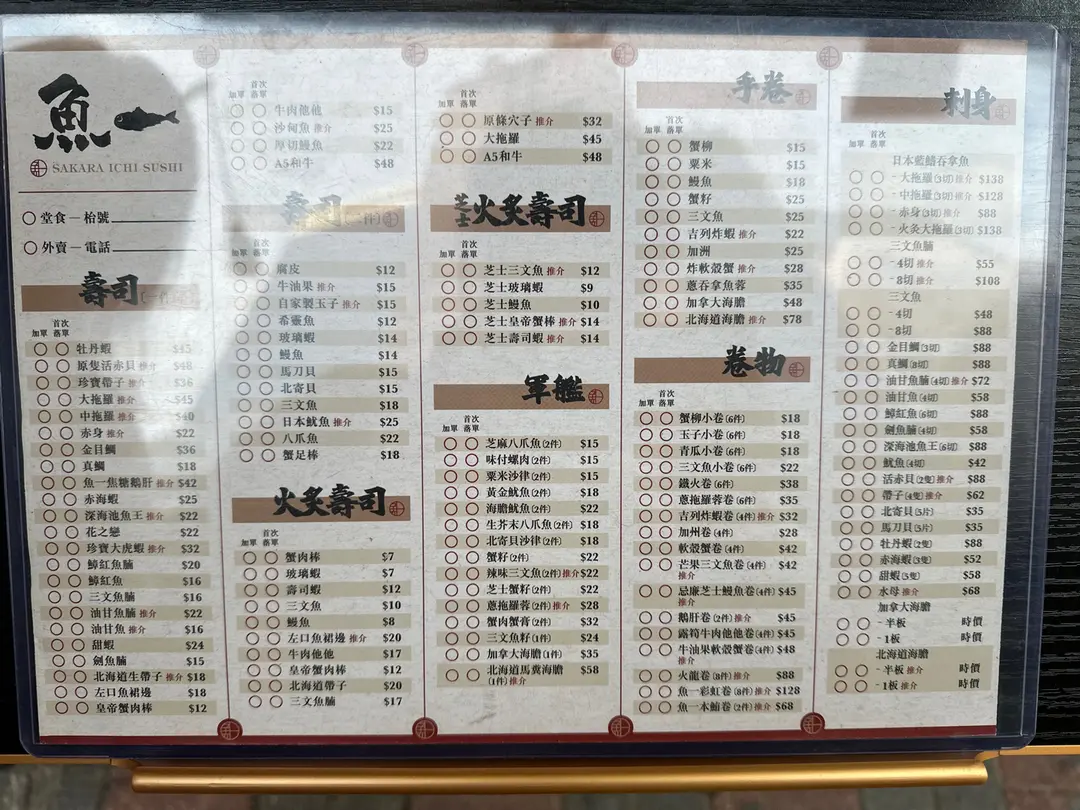 魚一
SAKARA ICHI SUSHI
堂食 — 枱號
外賣 — 電話
壽司(一件)
首次
加單 落單
牡丹蝦 $45
原隻活赤貝 推介 $48
珍寶帶子 推介 $36
大拖羅 推介 $45
中拖羅 推介 $40
赤身 推介 $22
金目鯛 $36
真鯛 $18
魚一焦糖鵝肝 推介 $42
赤海蝦 $25
深海池魚王 推介 $22
花之戀 $22
珍寶大虎蝦 推介 $32
鱆紅魚腩 $20
鱆紅魚 $16
三文魚腩 $16
油甘魚腩 推介 $22
油甘魚 推介 $16
甜蝦 $24
劍魚腩 $15
北海道生帶子 推介 $18
左口魚裙邊 $18
皇帝蟹肉棒 $12
首次
加單 落單
牛肉他他 $15
沙甸魚 推介 $25
厚切鰻魚 $22
A5和牛 $48
壽司(二件)
首次
加單 落單
腐皮 $12
牛油果 推介 $15
自家製玉子 推介 $15
希靈魚 $12
玻璃蝦 $14
鰻魚 $14
馬刀貝 $15
北寄貝 $15
三文魚 $18
日本魷魚 推介 $25
八爪魚 $22
蟹足棒 $18
火炙壽司
首次
加單 落單
蟹肉棒 $7
玻璃蝦 $7
壽司蝦 $12
三文魚 $10
鰻魚 $8
左口魚裙邊 推介 $20
牛肉他他 $17
皇帝蟹肉棒 $12
北海道帶子 $20
三文魚腩 $17
首次
加單 落單
原條穴子 推介 $32
大拖羅 $45
A5和牛 $48
芝士火炙壽司
首次
加單 落單
芝士三文魚 推介 $12
芝士玻璃蝦 $9
芝士鰻魚 $10
芝士皇帝蟹棒 推介 $14
芝士壽司蝦 推介 $14
軍艦
首次
加單 落單
芝麻八爪魚(2件) $15
味付螺肉(2件) $15
粟米沙律(2件) $15
黃金魷魚(2件) $18
海膽魷魚(2件) $22
生芥末八爪魚(2件) $18
北寄貝沙律(2件) $18
蟹籽(2件) $22
辣味三文魚(2件)推介 $22
芝士蟹籽(2件) $22
蔥拖羅蓉(2件)推介 $28
蟹肉蟹膏(2件) $32
三文魚籽(1件) $24
加拿大海膽(1件) $35
北海道馬糞海膽 $58
(1件)推介
手卷
首次
加單 落單
蟹柳 $15
粟米 $15
鰻魚 $18
蟹籽 $25
三文魚 $25
吉列炸蝦 推介 $22
加洲 $25
炸軟殼蟹 推介 $28
蔥吞拿魚蓉 $35
加拿大海膽 $48
北海道海膽 推介 $78
卷物
首次
加單 落單
蟹柳小卷(6件) $18
玉子小卷(6件) $18
青瓜小卷(6件) $18
三文魚小卷(6件) $22
鐵火卷(6件) $38
蔥拖羅蓉卷(6件) $35
吉列炸蝦卷(4件)推介 $32
加州卷(4件) $28
軟殼蟹卷(4件) $42
芒果三文魚卷(4件) $42
推介
忌廉芝士鰻魚卷(4件) $45
推介
鵝肝卷(2件)推介 $45
露筍牛肉他他卷(4件) $45
牛油果軟殼蟹卷(4件) $48
推介
火龍卷(8件)推介 $88
魚一彩虹卷(8件)推介 $128
魚一本鮪卷(2件)推介 $68
刺身
首次
加單 落單
日本藍鰭吞拿魚
- 大拖羅(3切)推介 $138
- 中拖羅(3切)推介 $128
- 赤身(3切)推介 $88
- 火炙大拖羅(3切) $138
三文魚腩
- 4切 推介 $55
- 8切 推介 $108
三文魚
- 4切 $48
- 8切 $88
金目鯛(3切) $88
真鯛(8切) $88
油甘魚腩(4切)推介 $72
油甘魚(4切) $58
鱆紅魚(6切) $88
劍魚腩(4切) $58
深海池魚王(6切) $88
魷魚(4切) $42
活赤貝(2隻)推介 $88
帶子(4隻)推介 $62
北寄貝(5片) $35
馬刀貝(5片) $35
牡丹蝦(2隻) $88
赤海蝦(3隻) $52
甜蝦(5隻) $58
水母 推介 $68
加拿大海膽
- 半板 時價
- 1板 時價
北海道海膽
- 半板 推介 時價
- 1板 推介 時價